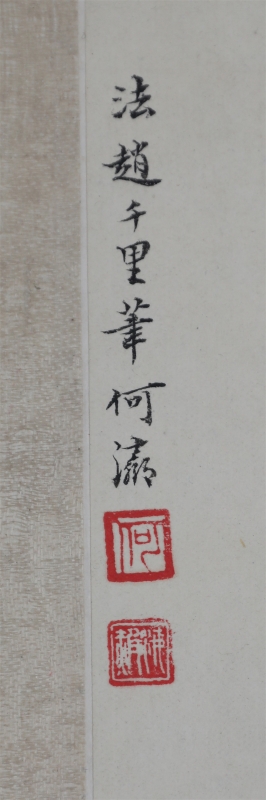 法趙千里筆何瀛
何